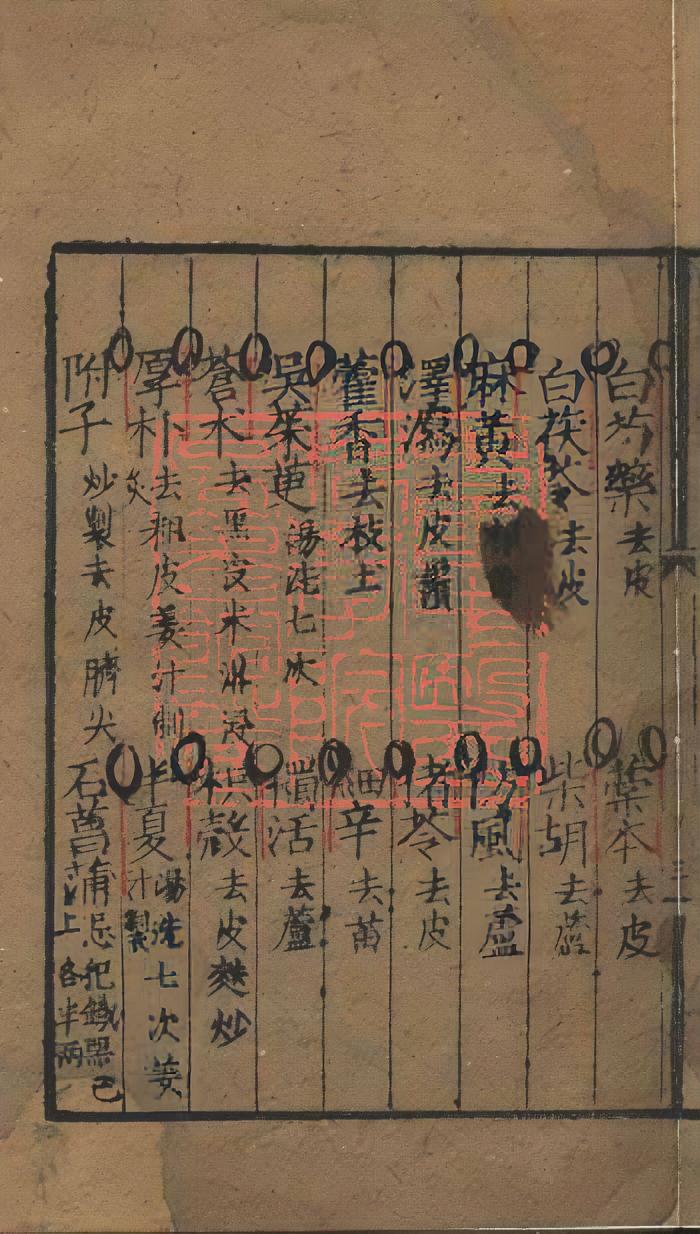 白芍藥去皮 藁本去皮
白茯苓去皮 柴胡去蘆
麻黃去 防風去蘆
澤瀉去皮 猪苓去皮
藿香去枝土 細辛去苗
吳茱萸湯洗七次 活去蘆
蒼朮去黑皮米泔浸 枳殻去皮麸炒
厚朴去粗皮姜汁制炙 半夏湯洗七次姜汁製
附子炒製去皮臍尖 石菖蒲忌犯鐵器已上各半兩